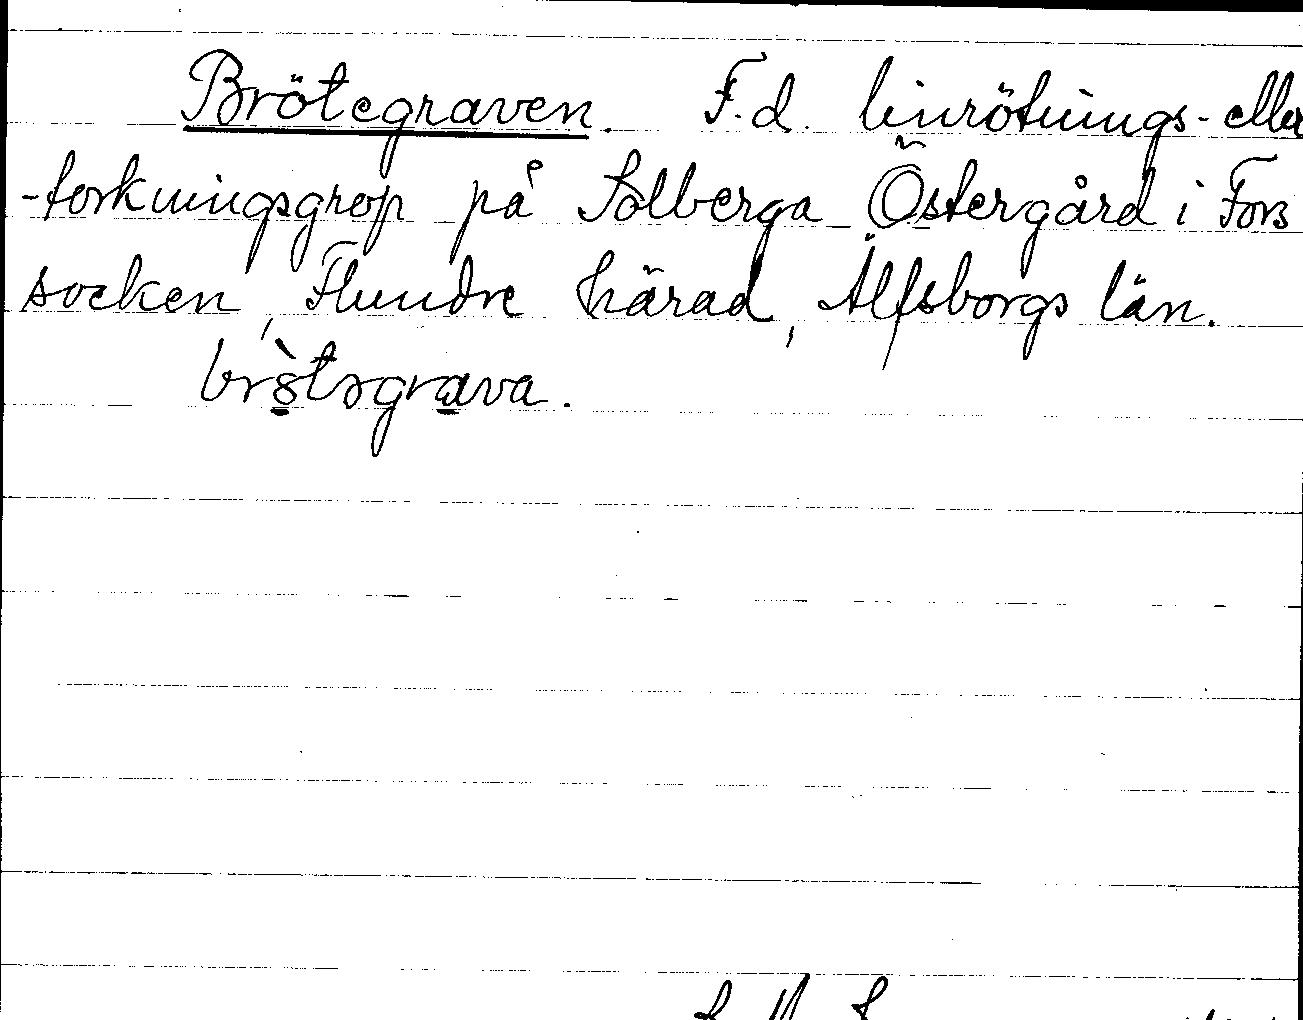 Brötegraven. F.d. linrötnings- eller
-torkningsgrop på Solberga Östergård i Fors
socken, Flundre härad, Älfsborgs län.
brö̀təgrava.